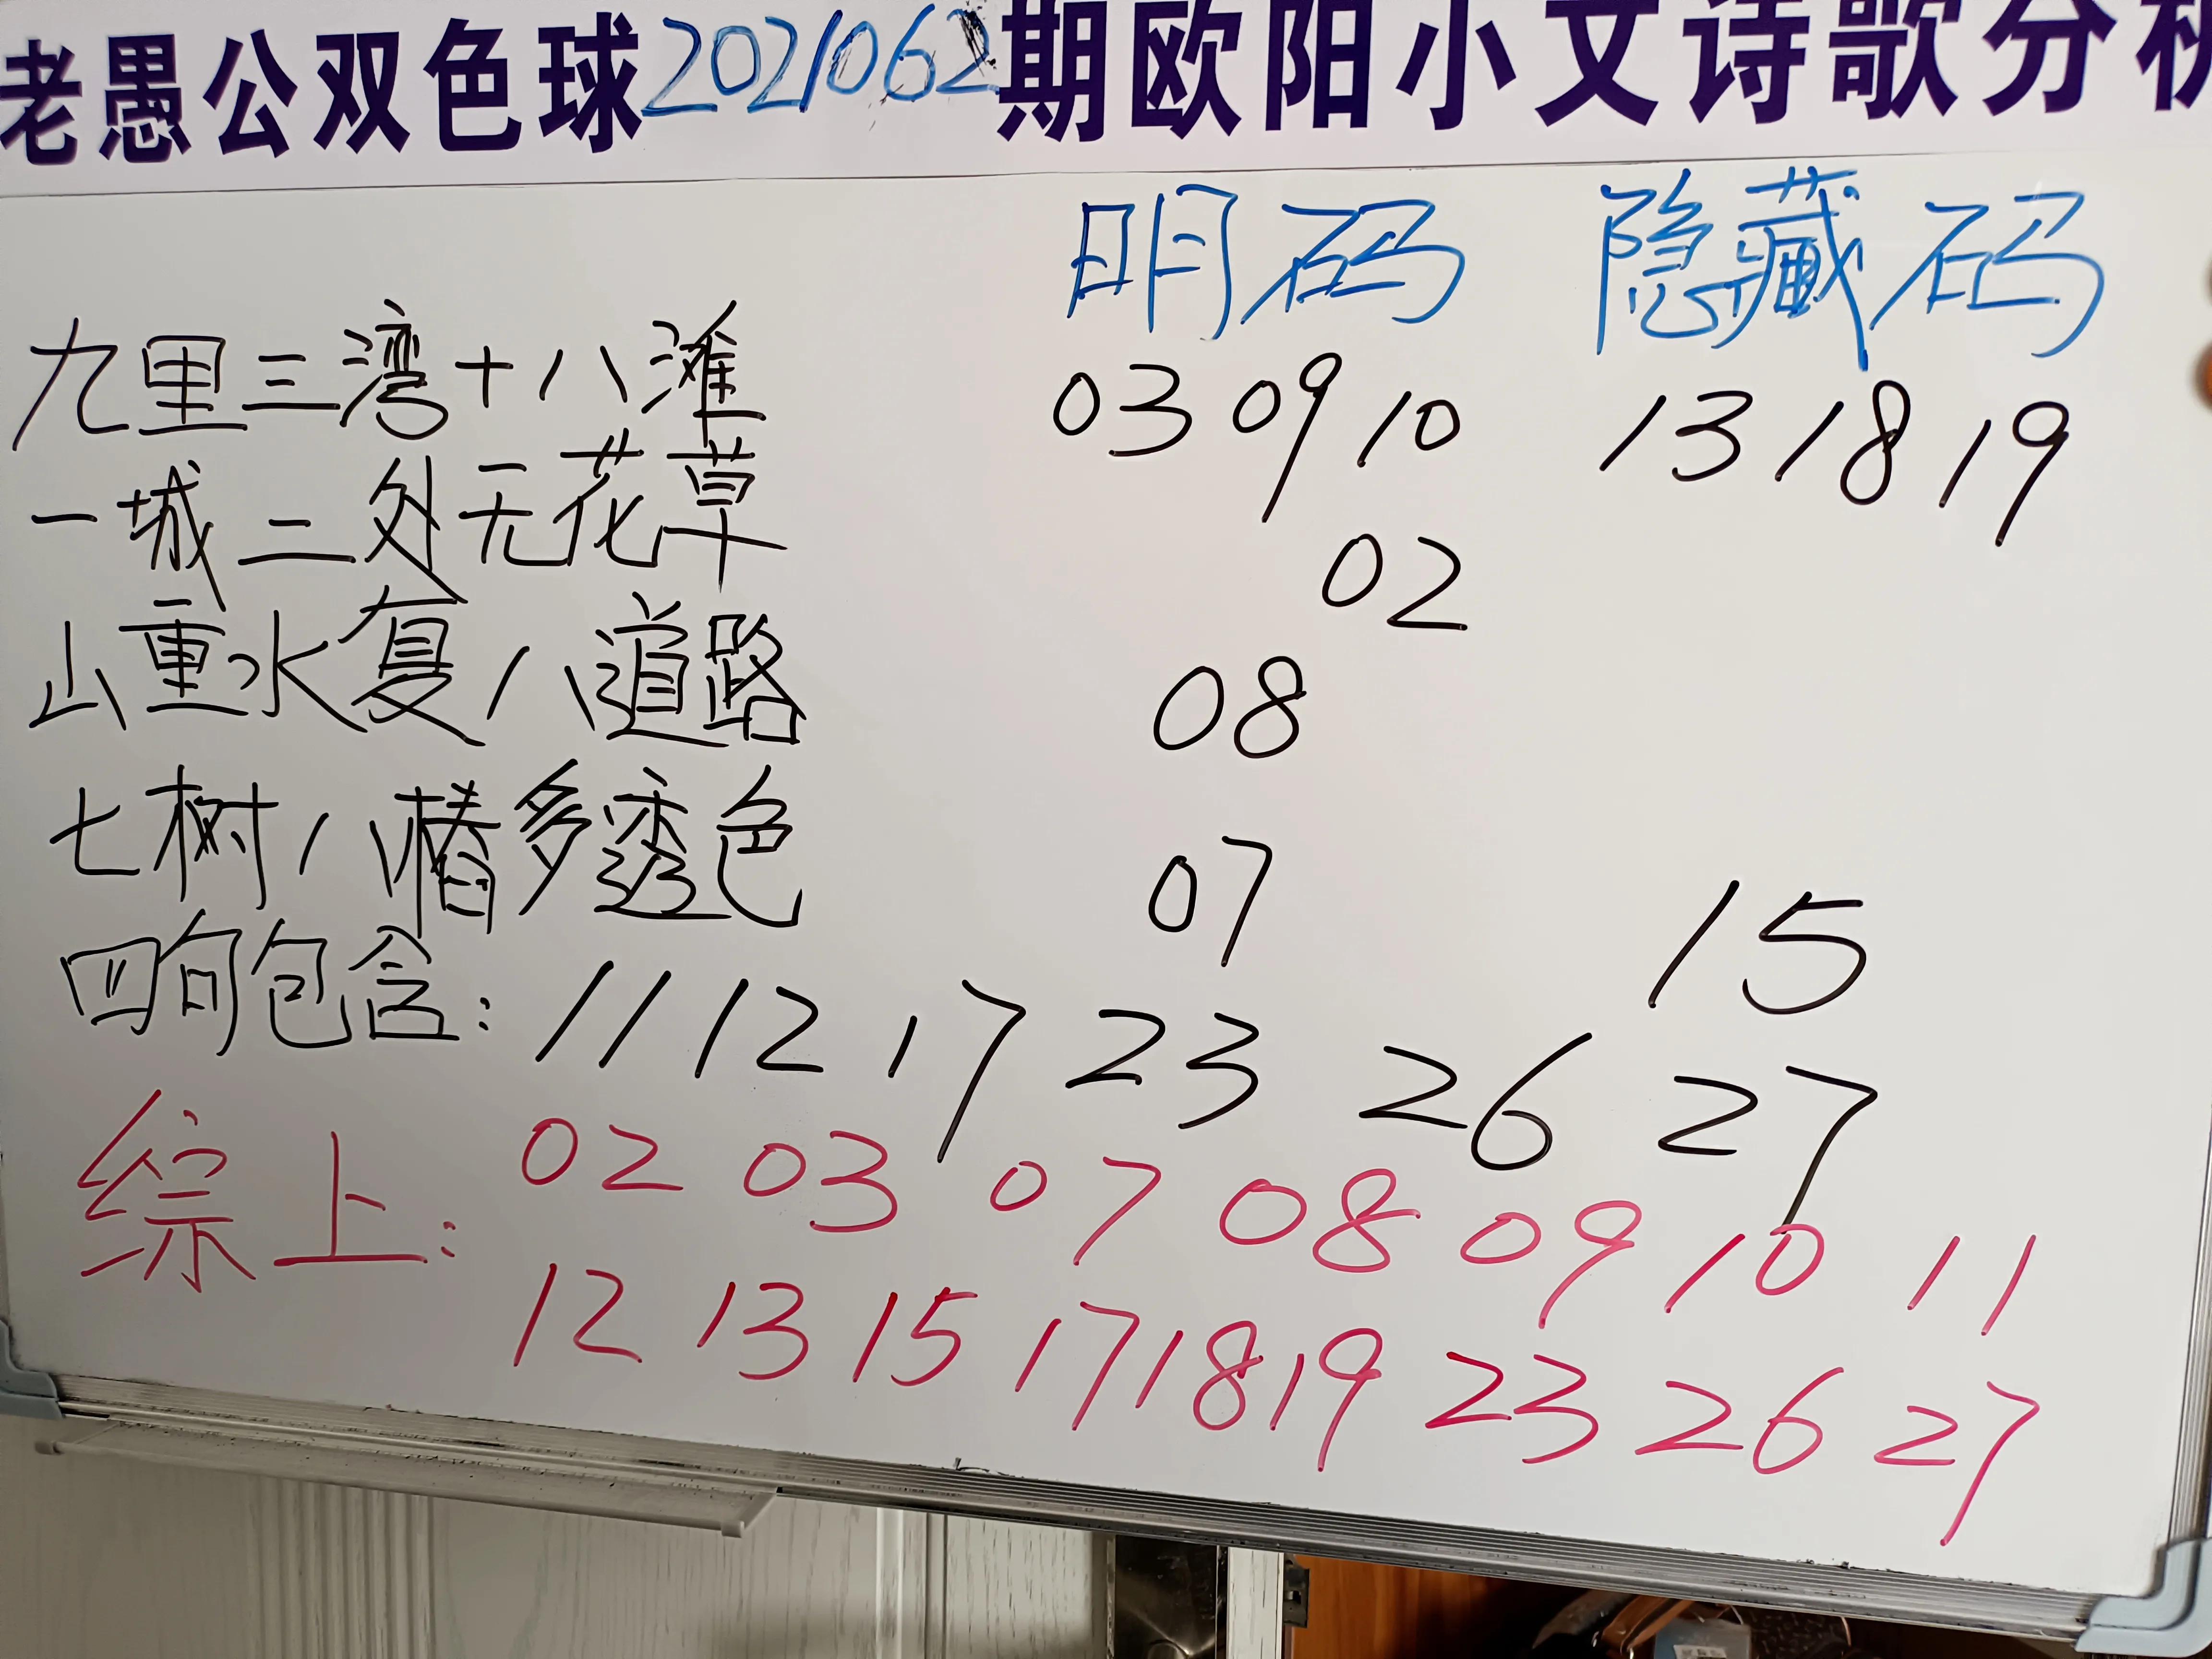 老愚公双色球2021062期欧阳小文诗歌分析
明码 隐藏码
九里三湾十八滩 03 09 10 13 18 19
一城二处无花草 02
山重水复八道路 08
七树八椿多透色 07 15
四句包含: 11 12 17 23 26 27
综上: 02 03 07 08 09 10 11
12 13 15 17 18 19 23 26 27